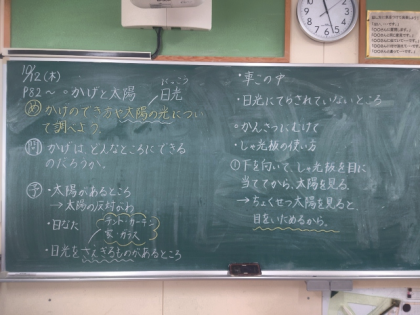 10/12(木)
P82～ ○かげと太陽 日光
にっこう
め かげのでき方や太陽の光につい
て調べよう。
問 かげは、どんなところにできる
のだろうか。
予 ・太陽があるところ
→太陽の反対がわ
・日なた
テント・カーテン
家・ガラス
・日光をさえぎるものがあるところ
・車この中
・日光にてらされていないところ
○かんさつにむけて
・しゃ光板の使い方
①下を向いて、しゃ光板を目に
当ててから、太陽を見る。
→ちょくせつ太陽を見ると、
目をいためるから。